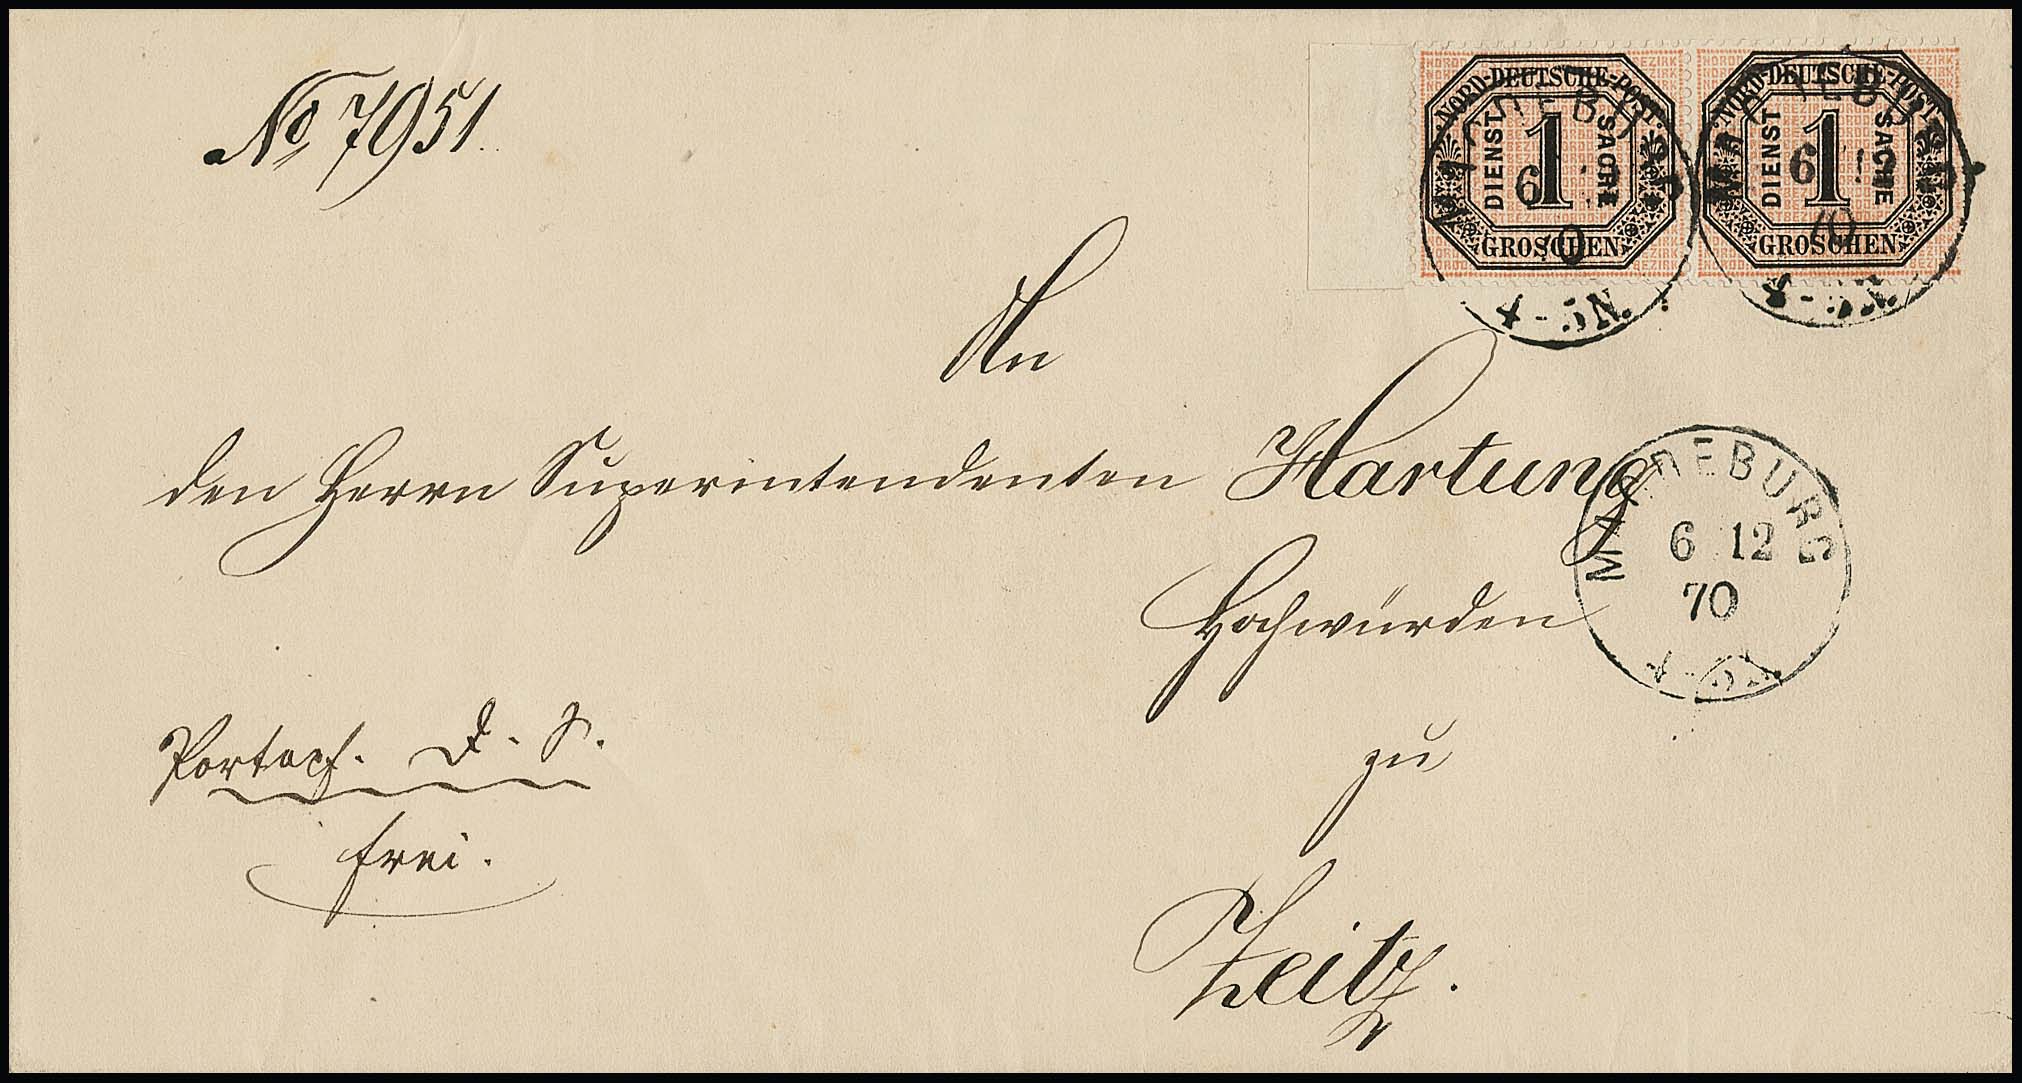 No 7951.
NORD-DEUTSCHE-POST
DIENST 1 SACHE
GROSCHEN
NORD-DEUTSCHE-POST
DIENST 1 SACHE
GROSCHEN
MAGDEBURG
6 12
70
4-5N.
MAGDEBURG
6 12
70
4-5N.
An
den Herrn Superintendenten Hartung
Hochwürden
MAGDEBURG
6 12
70
zu
Zeitz.
Portopf. D. S.
frei.